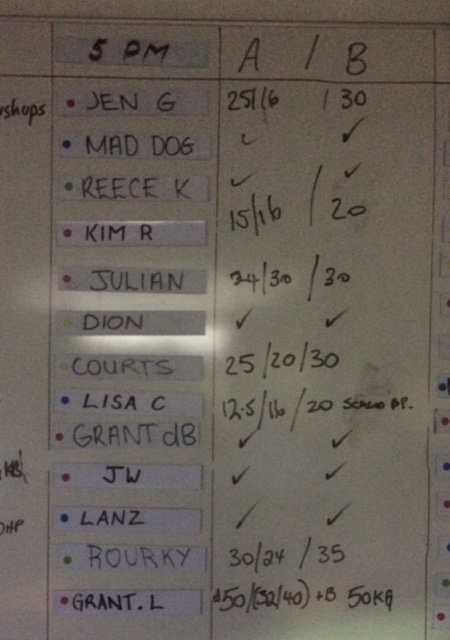 5 PM A / B
JEN G 25/16 / 30
MAD DOG ✓ ✓
REECE K ✓ ✓
KIM R 15/16 / 20
JULIAN 24/30 / 30
DION ✓ ✓
COURTS 25/20/30
LISA C 12.5/16 / 20
GRANT dB ✓ ✓
JW ✓ ✓
LANZ ✓ ✓
ROURKY 30/24 / 35
GRANT.L 50/(32/40) +B 50KG